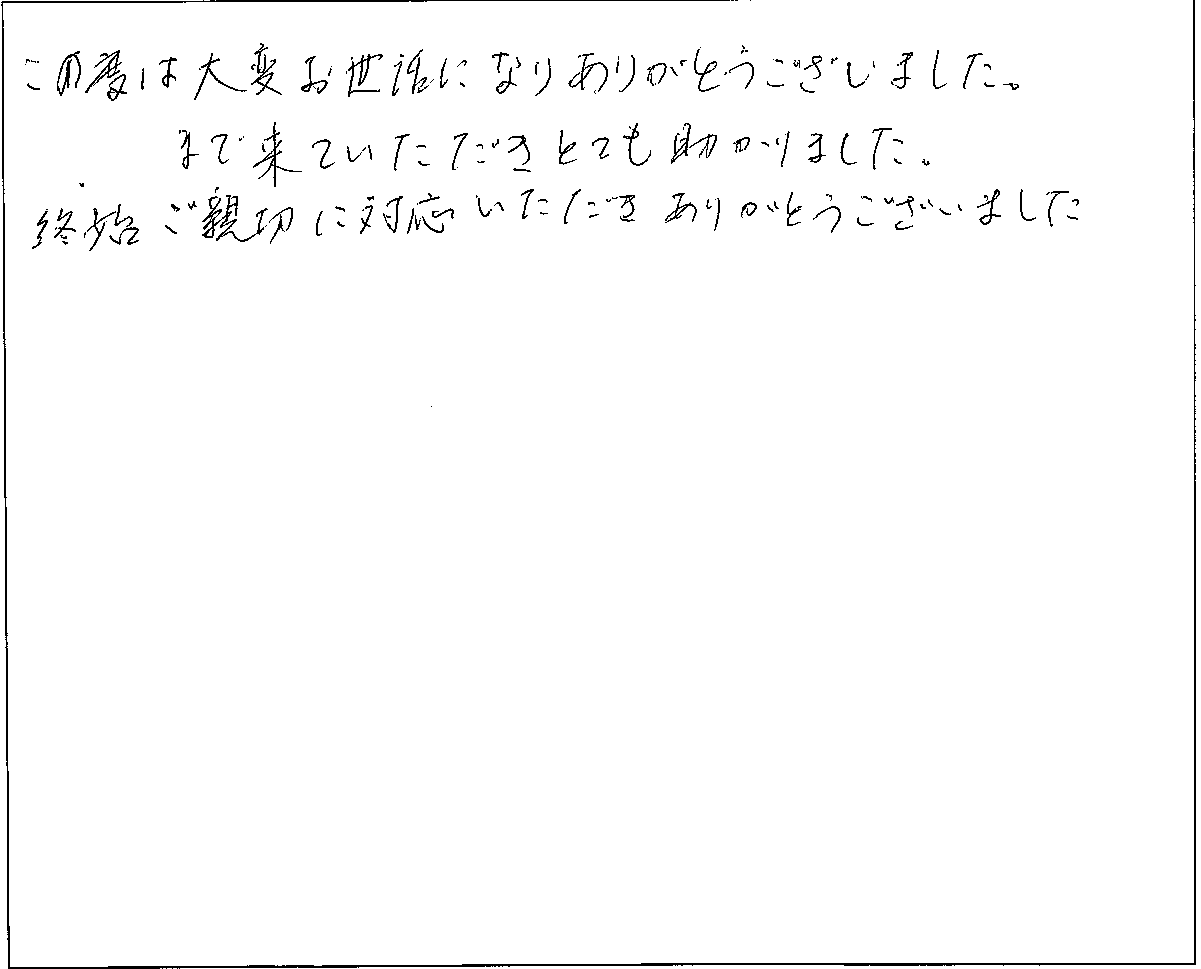 この度は大変お世話になりありがとうございました。
まで来ていただきとても助かりました。
終始ご親切に対応いただきありがとうございました